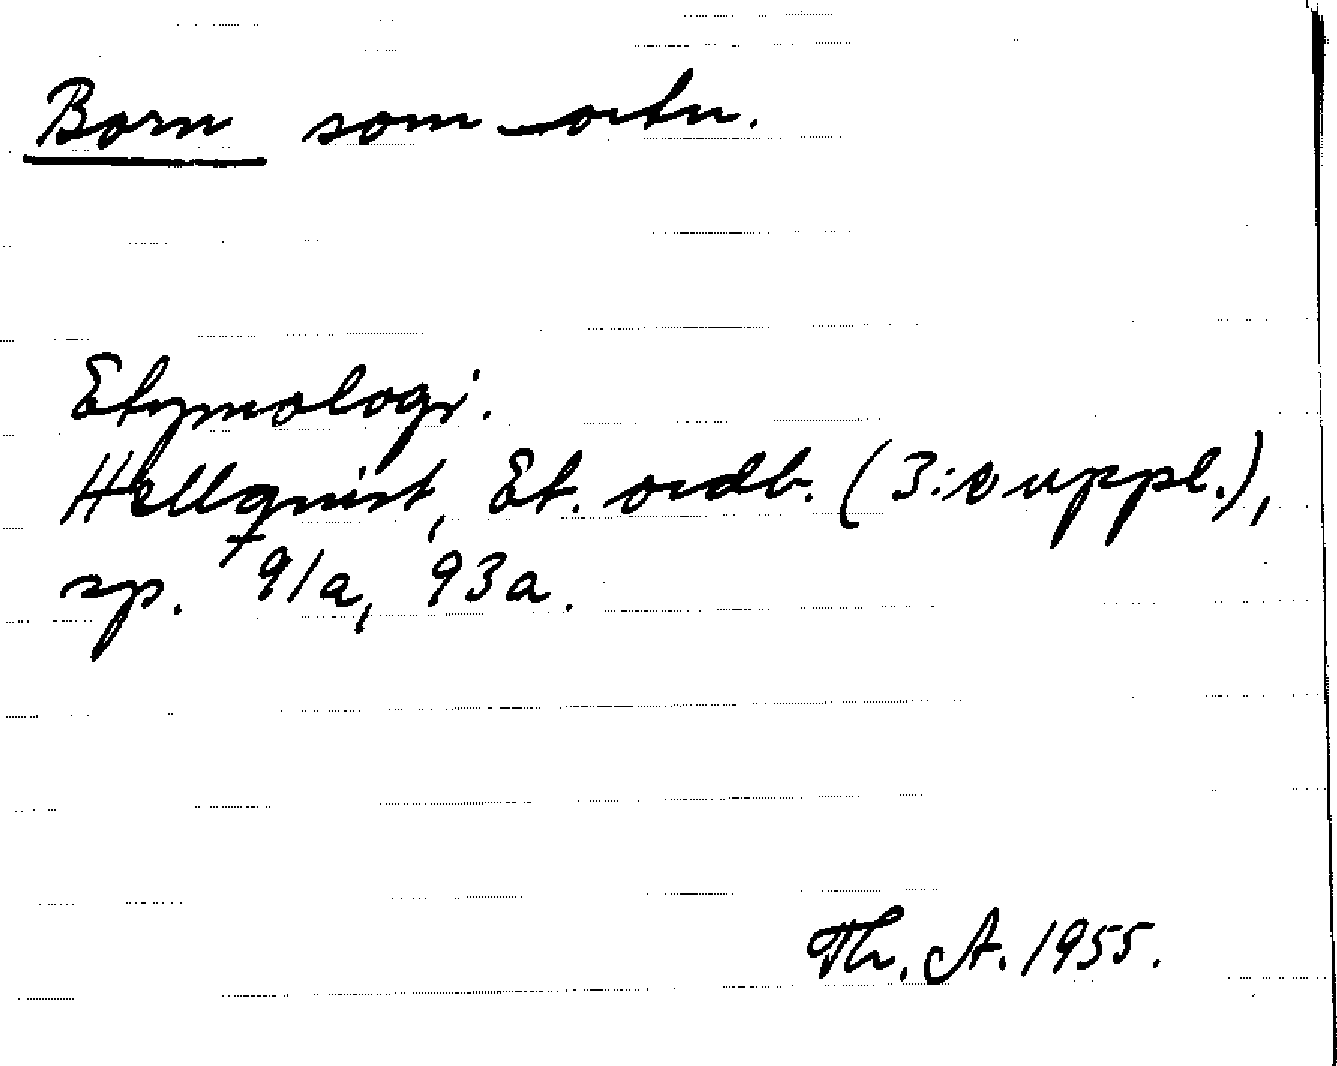 Born som ortn.
Etymologi.
Hellquist, Et. ordb. (3:e uppl.),
sp. 91a, 93a.
Th. A. 1955.